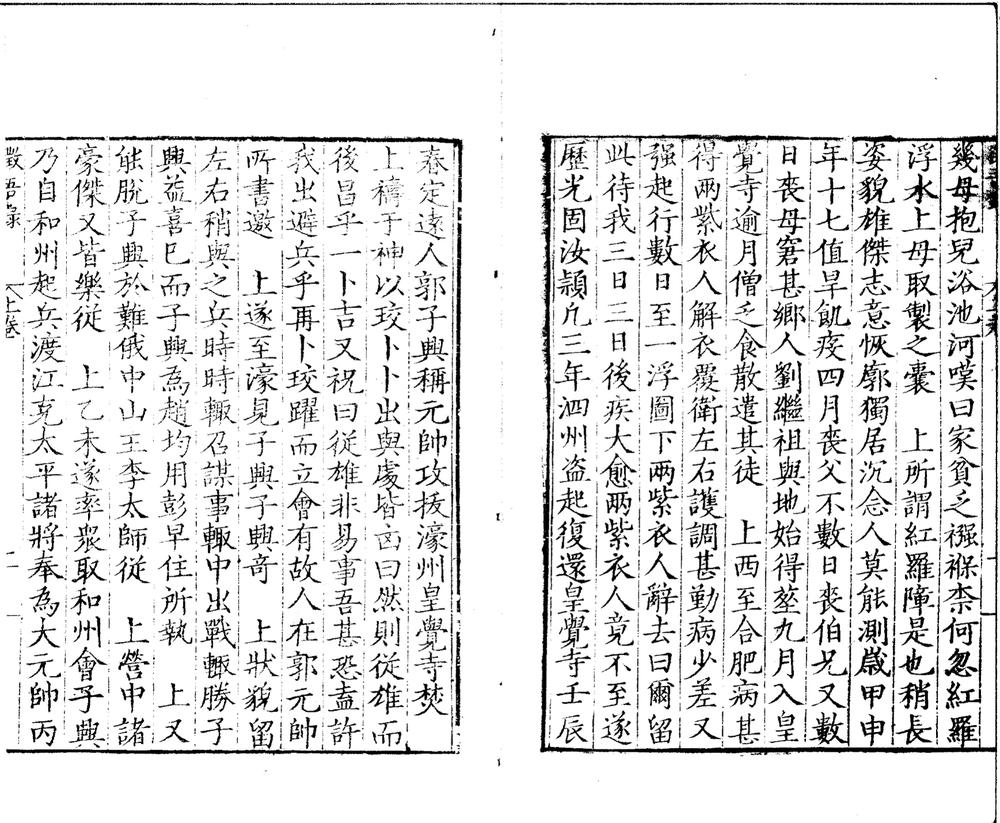 幾母抱兒浴池河嘆曰家貧乏襁褓柰何忽紅羅
浮水上母取製之囊　上所謂紅羅障是也稍長
姿貌雄傑志意恢廓獨居沉念人莫能測歲甲申
年十七值旱飢疫四月喪父不數日喪伯兄又數
日喪母窘甚鄉人劉繼祖與地始得塟九月入皇
覺寺逾月僧乏食散遣其徒　上西至合肥病甚
得兩紫衣人解衣覆衛左右護調甚勤病少差又
强起行數日至一浮圖下兩紫衣人辭去曰爾留
此待我三日三日後疾大愈兩紫衣人竟不至遂
歷光固汝潁凢三年泗州盗起復還皇覺寺壬辰
春定遠人郭子興稱元帥攻拔濠州皇覺寺焚
上禱于神以珓卜卜出與處皆㐫曰然則從雄而
後昌乎一卜吉又祝曰從雄非易事吾甚恐盍許
我出避兵乎再卜珓躍而立會有故人在郭元帥
所書邀　上遂至濠見子興子興竒　上狀貌留
左右稍與之兵時時輙召謀事輙中出戰輙勝子
興益喜巳而子興為趙均用彭早住所執　上又
能脫子興於難俄中山王李太師從　上營中諸
豪傑又皆樂從　上乙未遂率衆取和州會子興
乃自和州起兵渡江克太平諸將奉為大元帥丙
徵吾錄
上卷